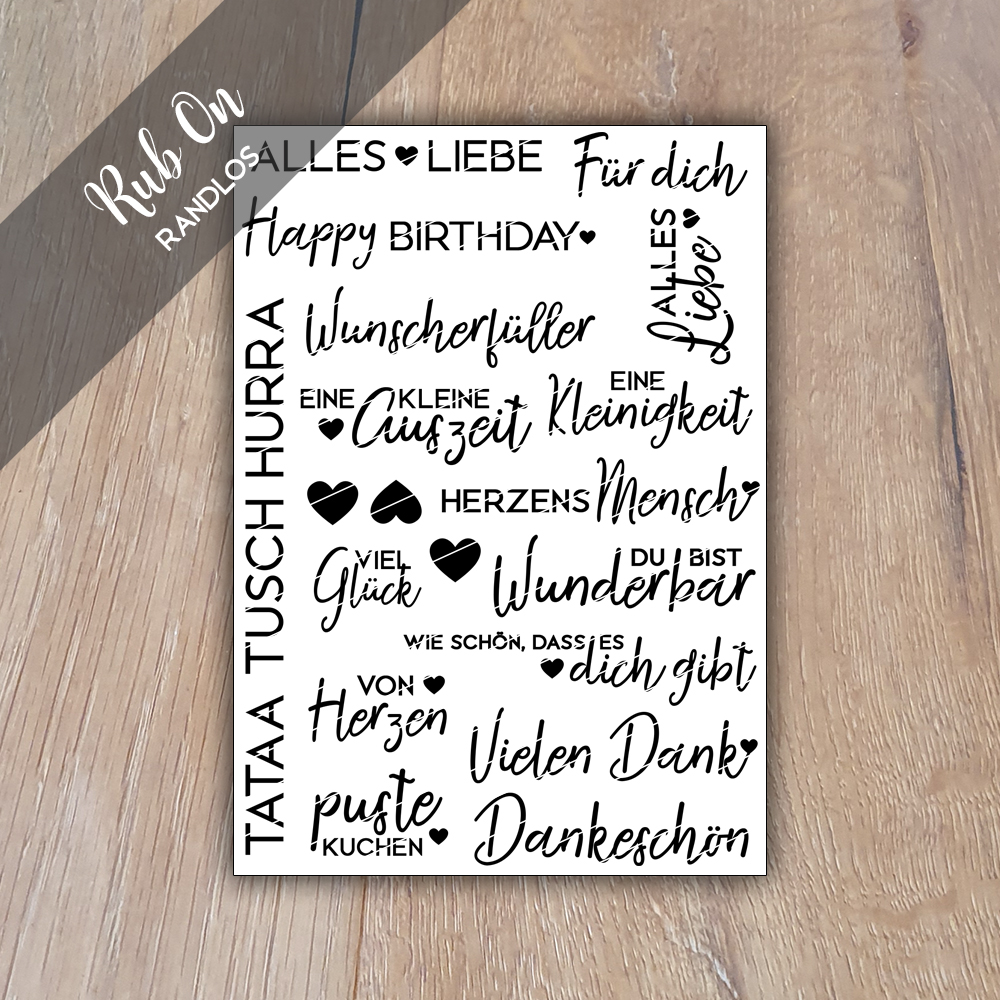 Rub On
RANDLOS
ALLES LIEBE
Für dich
Happy BIRTHDAY
ALLES
Liebe
Wunscherfüller
TATAA TUSCH HURRA
EINE KLEINE
Auszeit
EINE
Kleinigkeit
HERZENS Mensch
VIEL
Glück
DU BIST
Wunderbar
WIE SCHÖN, DASS ES
dich gibt
VON
Herzen
Vielen Dank
puste
KUCHEN
Dankeschön